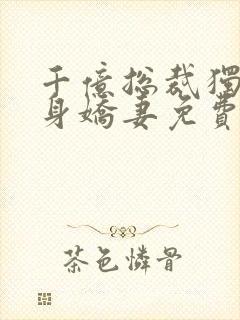 千億總裁獨
身嬌妻免費
茶色憐骨